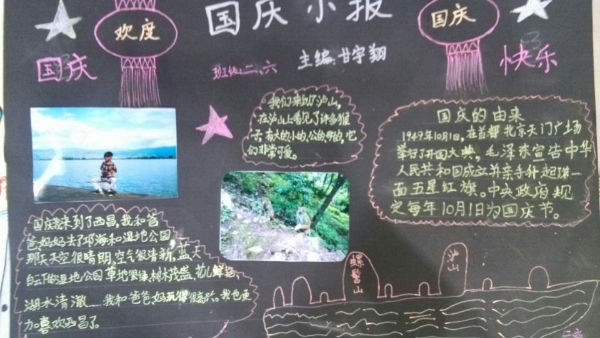 国庆小报
欢度
国庆
国庆
快乐
班级:二、六
主编:甘宇翔
我们来到了泸山,
在泸山上看见了许多猴
子,有大的小的,公的母的,它
们非常可爱。
国庆的由来
1949年10月1日,在首都北京天门广场
举行了开国大典,毛泽东宣告中华
人民共和国成立并亲手升起第一
面五星红旗。中央政府规
定每年10月1日为国庆节。
国庆我来到了西昌,我和爸
爸妈妈去了邛海和湿地公园
那天天空很晴朗,空气很清新,蓝天
白云湿地公园草地很绿,树木茂盛,花儿鲜艳
湖水清澈……我和爸爸妈妈玩得很高兴。我也更
加喜欢西昌了。
螺髻山
泸山
二、六